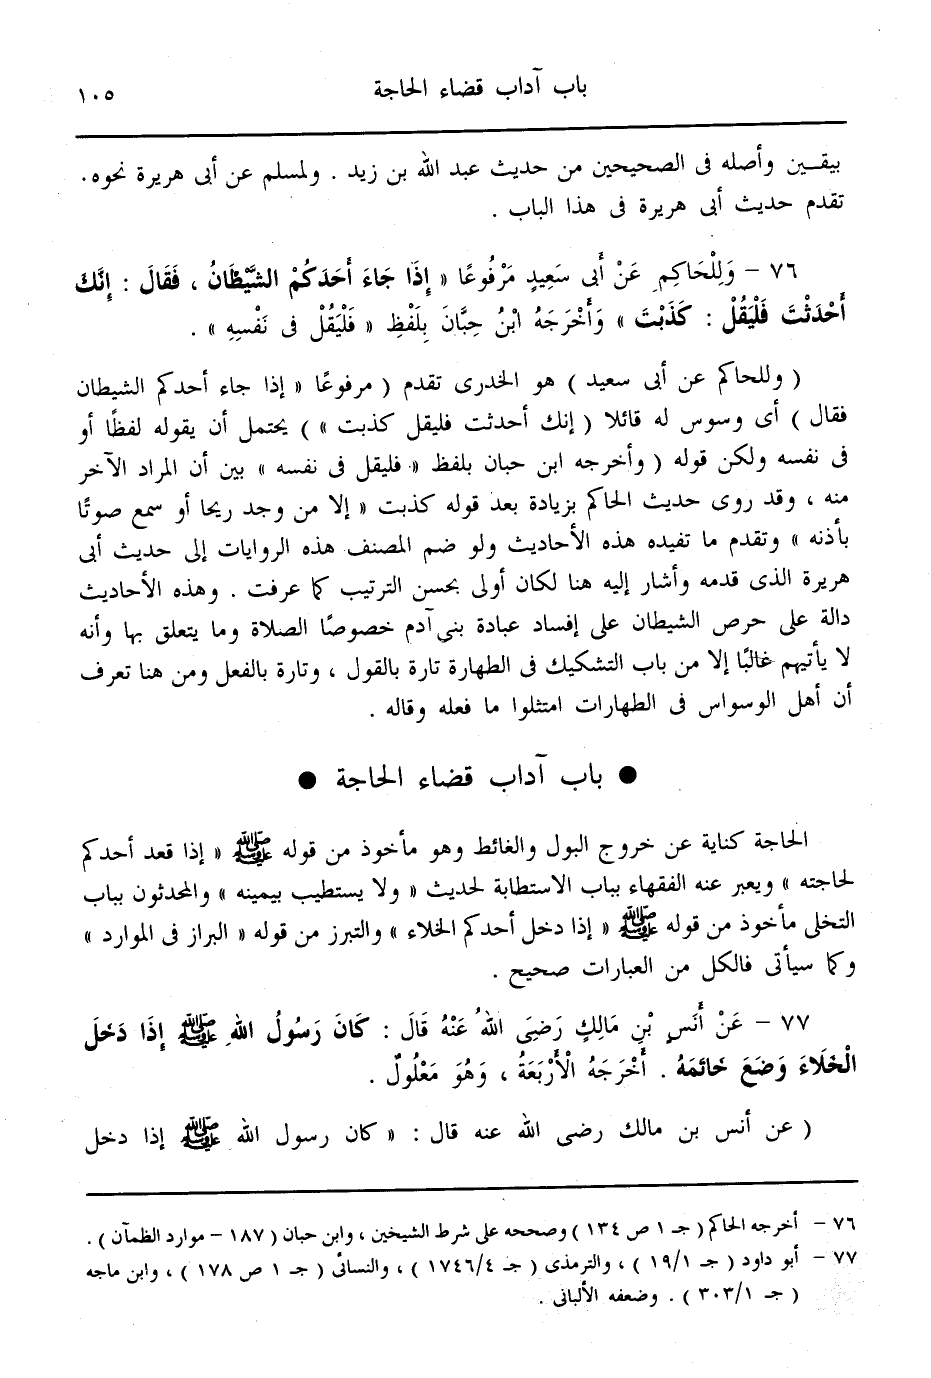 باب آداب قضاء الحاجة
١٠٥
بيقـين وأصله فى الصحيحين من حديث عبد الله بن زيد . ولمسلم عن أبى هريرة نحوه.
تقدم حديث أبى هريرة فى هذا الباب .
٧٦ – وَلِلْحَاكِمِ عَنْ أَبى سَعِيدٍ مَرْفُوعًا « إِذَا جَاءَ أَحَدَكُمْ الشَّيْطَانُ ، فَقَالَ : إِنَّكَ
أَحْدَثْتَ فَلْيَقُلْ : كَذَبْتَ » وَأَخْرَجَهُ ابْنُ حِبَّانَ بِلَفْظِ « فَلْيَقُلْ فى نَفْسِهِ » .
( وللحاكم عن أبى سعيد ) هو الخدرى تقدم ( مرفوعًا « إذا جاء أحدكم الشيطان
فقال ) أى وسوس له قائلا ( إنك أحدثت فليقل كذبت » ) يحتمل أن يقوله لفظًا أو
فى نفسه ولكن قوله ( وأخرجه ابن حبان بلفظ « فليقل فى نفسه » بين أن المراد الآخر
منه ، وقد روى حديث الحاكم بزيادة بعد قوله كذبت « إلا من وجد ريحا أو سمع صوتًا
بأذنه » وتقدم ما تفيده هذه الأحاديث ولو ضم المصنف هذه الروايات إلى حديث أبى
هريرة الذى قدمه وأشار إليه هنا لكان أولى بحسن الترتيب كما عرفت . وهذه الأحاديث
دالة على حرص الشيطان على إفساد عبادة بنى آدم خصوصًا الصلاة وما يتعلق بها وأنه
لا يأتيهم غالبًا إلا من باب التشكيك فى الطهارة تارة بالقول ، وتارة بالفعل ومن هنا تعرف
أن أهل الوسواس فى الطهارات امتثلوا ما فعله وقاله .
● باب آداب قضاء الحاجة ●
الحاجة كناية عن خروج البول والغائط وهو مأخوذ من قوله ﷺ « إذا قعد أحدكم
لحاجته » ويعبر عنه الفقهاء بباب الاستطابة لحديث « ولا يستطيب بيمينه » والمحدثون بباب
التخلى مأخوذ من قوله ﷺ « إذا دخل أحدكم الخلاء » والتبرز من قوله « البراز فى الموارد »
وكما سيأتى فالكل من العبارات صحيح .
٧٧ – عَنْ أَنَسِ بْنِ مَالِكٍ رَضِىَ اللهُ عَنْهُ قَالَ : كَانَ رَسُولُ اللهِ ﷺ إِذَا دَخَلَ
الْخَلَاءَ وَضَعَ خَاتَمَهُ . أَخْرَجَهُ الْأَرْبَعَةُ ، وَهُوَ مَعْلُولٌ .
( عن أنس بن مالك رضى الله عنه قال : « كان رسول الله ﷺ إذا دخل
٧٦ – أخرجه الحاكم ( جـ ١ ص ١٣٤ ) وصححه على شرط الشيخين ، وابن حبان ( ١٨٧ – موارد الظمآن ) .
٧٧ – أبو داود ( جـ ١٩/١ ) ، والترمذى ( جـ ١٧٤٦/٤ ) ، والنسائى ( جـ ١ ص ١٧٨ ) ، وابن ماجه
( جـ ٣٠٣/١ ) . وضعفه الألبانى .